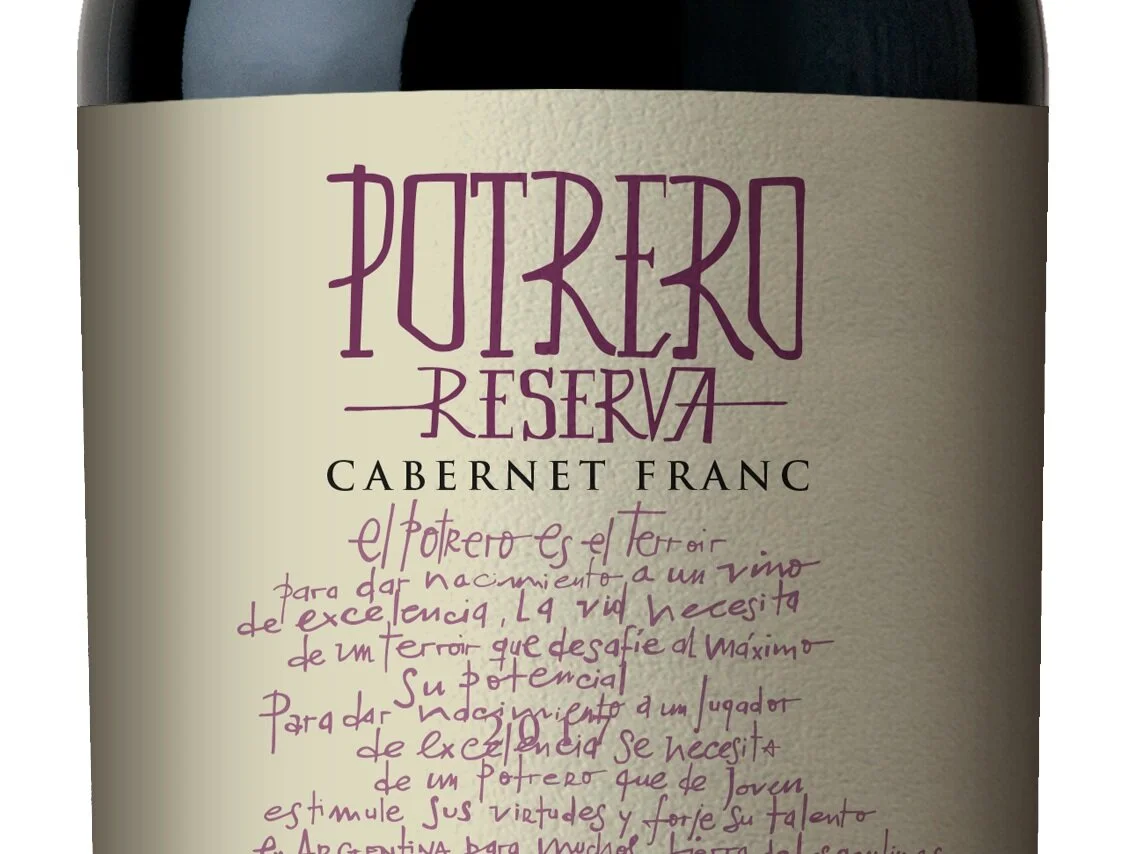 POTRERO
RESERVA
CABERNET FRANC
el potrero es el Terroir
para dar nacimiento a un vino
de excelencia, La vid necesita
de un Terroir que desafíe al máximo
su potencial
Para dar nacimiento a un jugador
2017
de excelencia se necesita
de un potrero que de Joven
estimule sus virtudes y forje su talento
en ARGENTINA para muchos